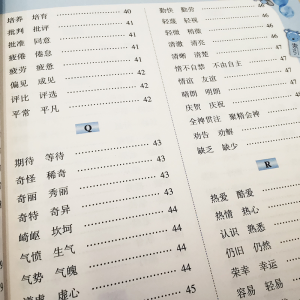 培养 培育 40
批判 批评 41
批准 同意 41
疲倦 倦怠 41
疲劳 疲惫 42
偏见 成见 42
评比 评选 42
平常 平凡 42
Q
期待 等待 43
奇怪 稀奇 43
奇丽 秀丽 43
奇特 奇异 44
崎岖 坎坷 44
气愤 生气 44
气势 气魄 44
谦虚 虚心 45
勤快 勤劳
轻蔑 轻视
轻微 稍微
清澈 清亮
清晰 清楚
情不自禁 不由自主
情谊 友谊
晴朗 明朗
庆贺 庆祝
全神贯注 聚精会神
劝告 劝解
缺乏 缺少
R
热爱 酷爱
热情 热心
认识 熟悉
仍旧 仍然
荣幸 幸运
容易 轻易